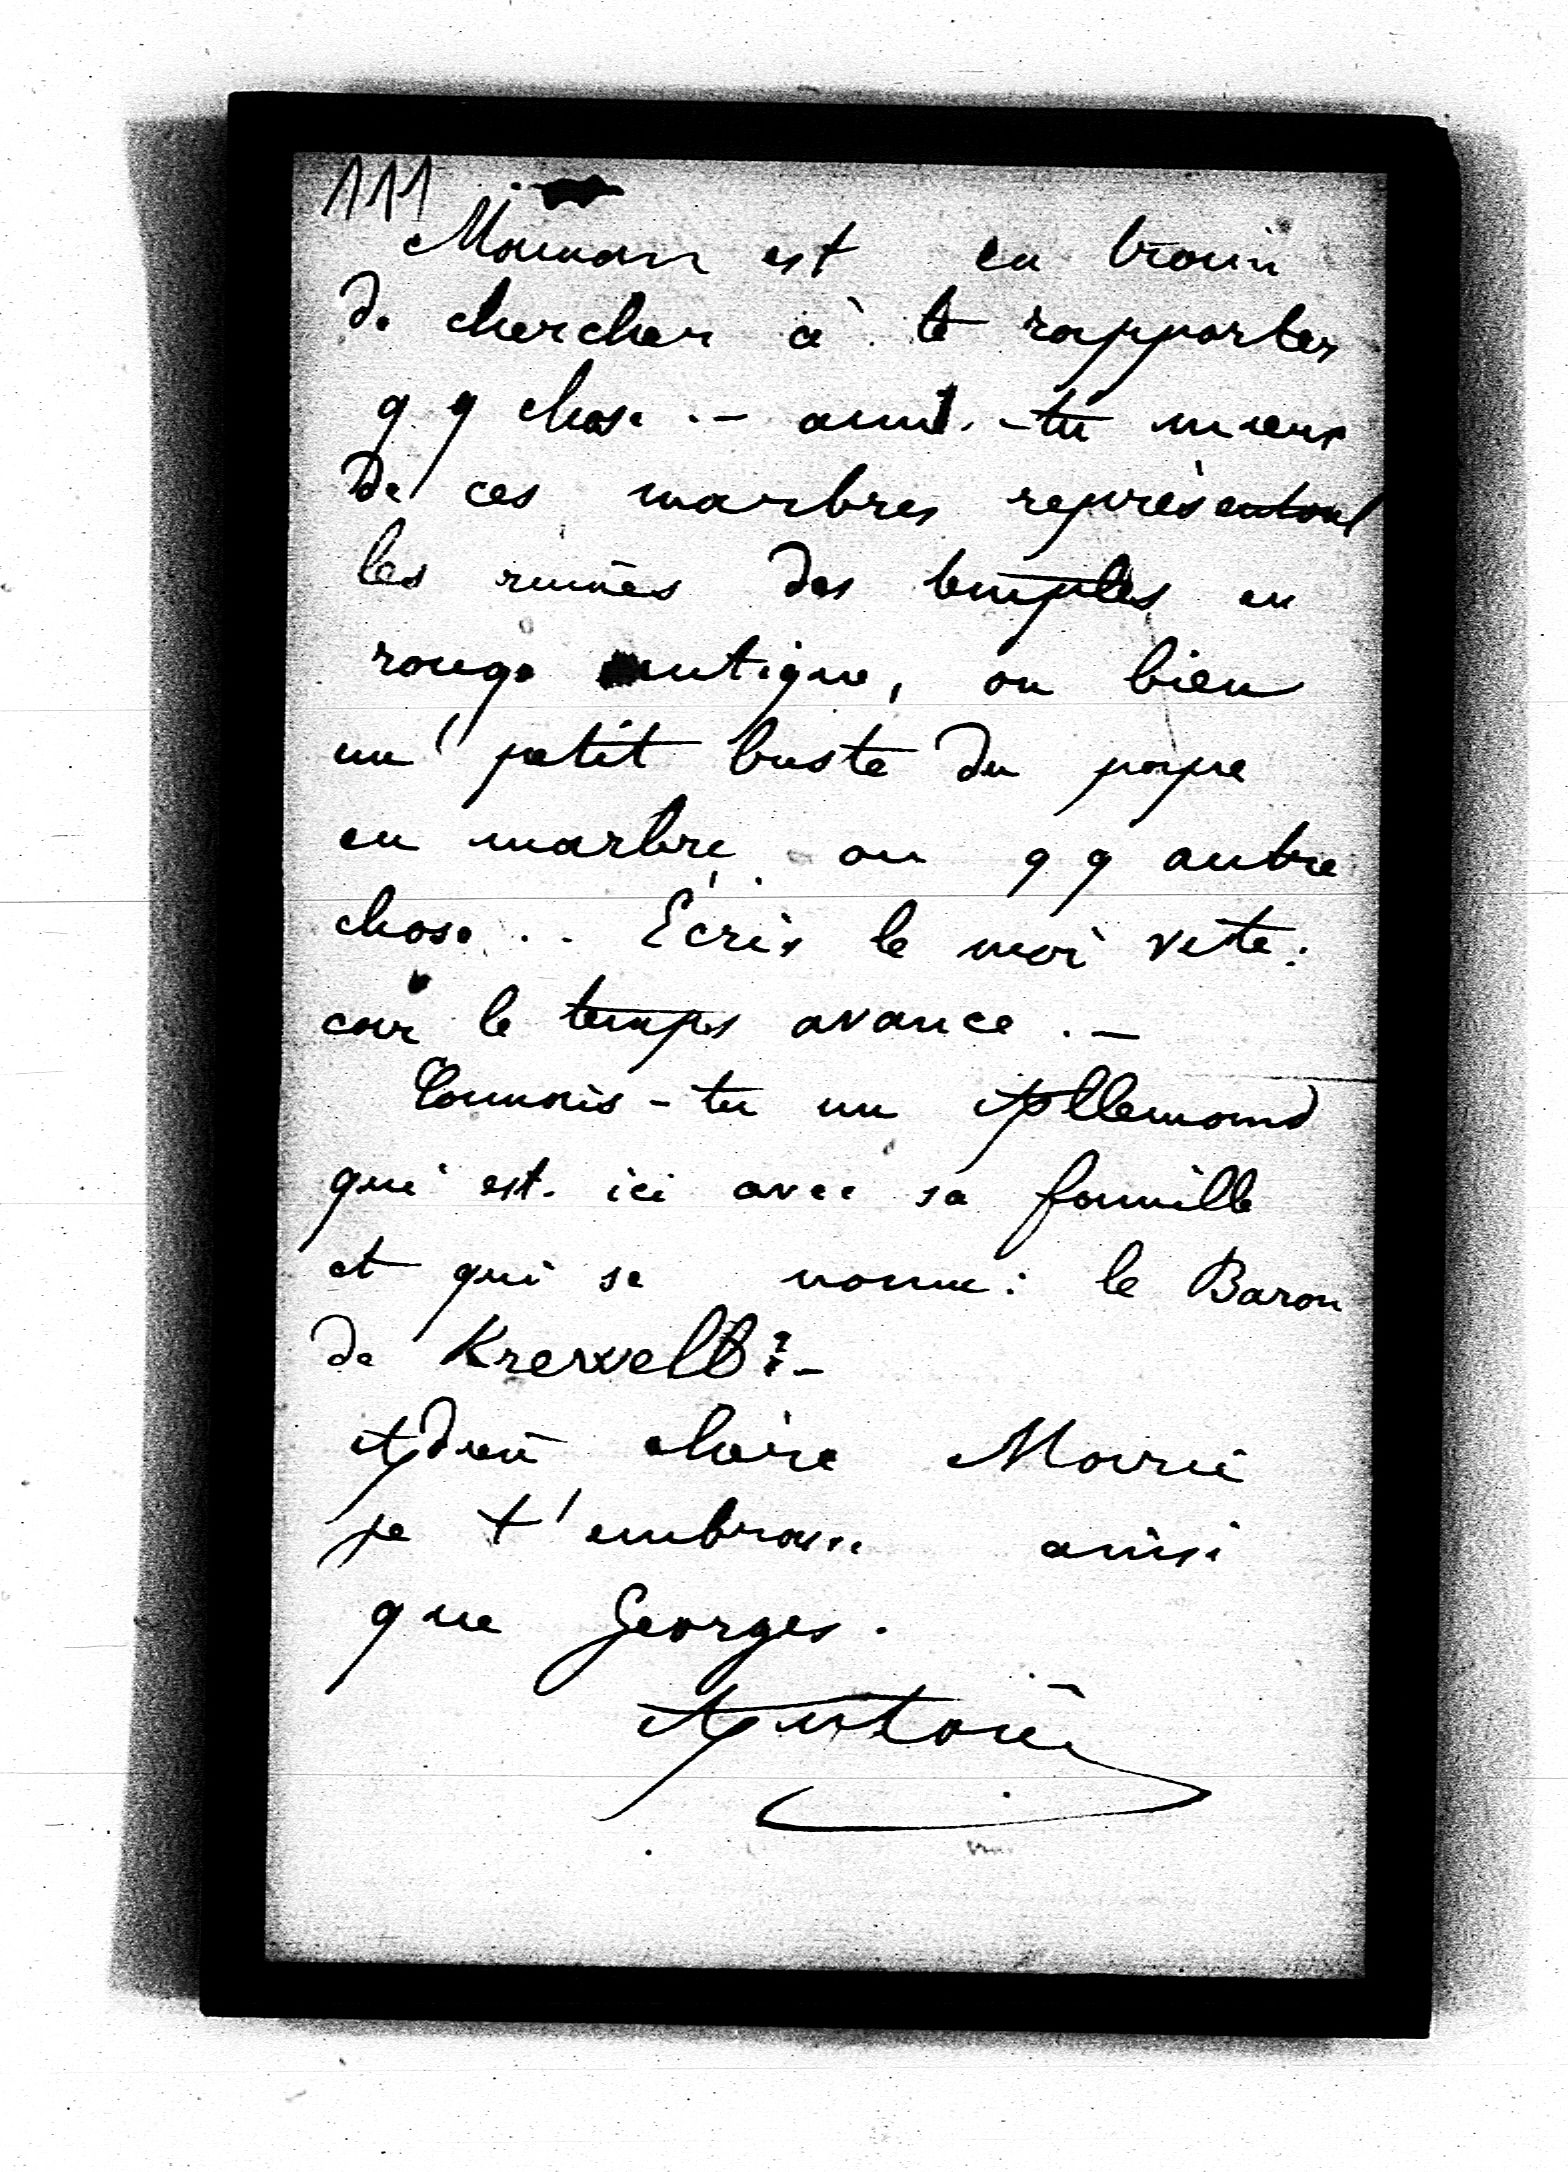 111
Maman est en train
de chercher à te rapporter
qq chose .- aimes-tu mieux
de ces marbres représentant
les ruines des temples en
rouge antique, ou bien
un petit buste du pape
en marbre ou qq autre
chose .. Écris le moi vite:
car le temps avance .-
Connais-tu un Allemand
qui est ici avec sa famille
et qui se nomme: le Baron
de ?-
Adieu chère Marie
je t'embrasse ainsi
que Georges.
Antoine